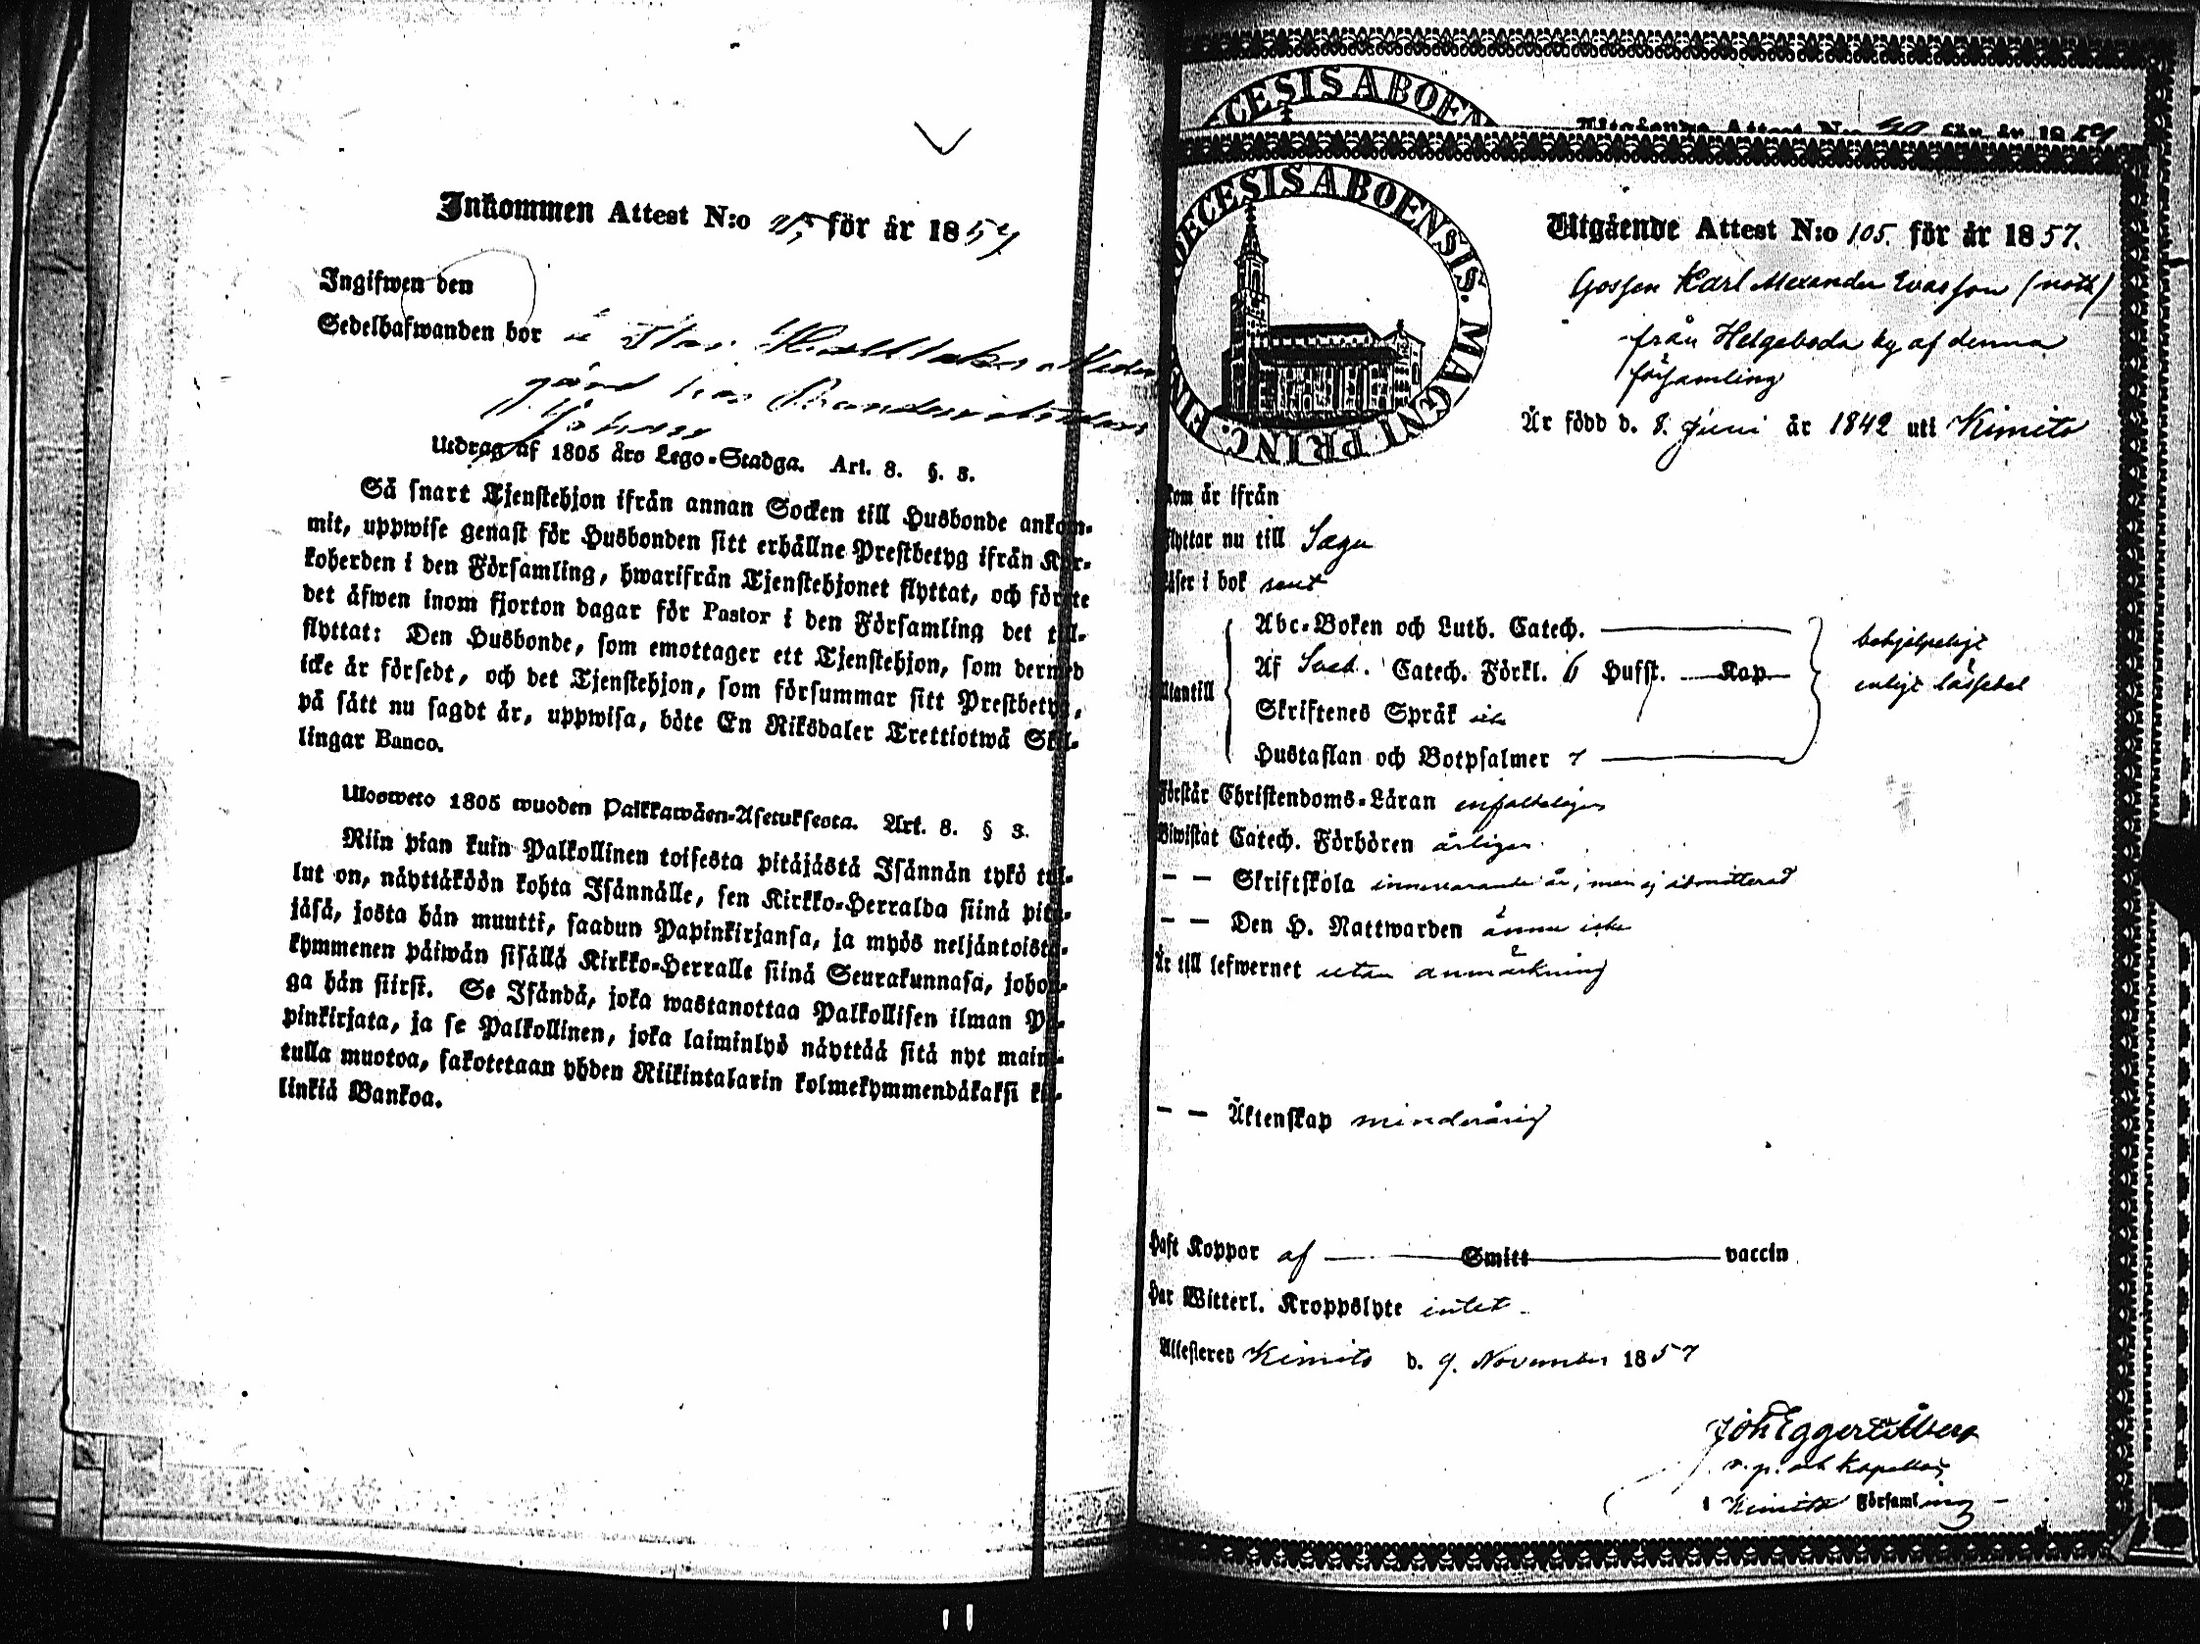 Inkommen Attest N:o för år 1857
Ingifwen den
Sedelhafwanden bor
Utdrag af 1805 års Lego-Stadga. Art. 8. §. 3.
Så snart Tjenstehjon ifrån annan Socken till Husbonde ankom-
mit, uppwise genast för Husbonden sitt erhållne Prestbetyg ifrån Kyr-
koherden i den Församling, hwarifrån Tjenstehjonet flyttat, och förete
det äfwen inom fjorton dagar för Pastor i den Församling det till-
flyttat: Den Husbonde, som emottager ett Tjenstehjon, som dermed
icke är försedt, och det Tjenstehjon, som försummar sitt Prestbetyg,
på sätt nu sagdt är, uppwisa, böte En Riksdaler Trettiotwå Skil-
lingar Banco.
Ulosweto 1805 wuoden Palkkawäen-Asetuksesta. Art. 8. § 3.
Niin pian kuin Palkollinen toisesta pitäjästä Isännän tykö tul-
lut on, näyttäköön kohta Isännälle, sen Kirkko-Herralda siinä pitä-
jäsä, josta hän muutti, saadun Papinkirjansa, ja myös neljäntoista-
kymmenen päiwän sisällä Kirkko-Herralle siinä Seurakunnasa, johon-
ga hän siirsi. Se Isändä, joka wastanottaa Palkollisen ilman Pa-
pinkirjata, ja se Palkollinen, joka laiminlyö näyttää sitä nyt maini-
tulla muotoa, sakotetaan yhden Riikintalarin kolmekymmendäkaksi kil-
linkiä Bankoa.
CESIS ABOEN
Utgående Attest N:o för år 18
DIOECESIS ABOENSIS. MAGNI PRINC. FIN
Utgående Attest N:o 105. för år 1857.
Gossen Karl Alexander Evasson
från Helgeboda by af denna
församling
Är född d. 8. Juni år 1842 uti Kimito
kom är ifrån
flyttar nu till Sagu
Läser i bok sant
Abc-Boken och Luth. Catech.
behjelpeligt
Utantill
Af Sved. Catech. Förkl. 6 Hufst. Kap
enligt
Skriftenes Språk
Hustaflan och Botpsalmer
Förstår Christendoms-Läran enfaldeligen
Biwistat Catech. Förhören årligen
— — Skriftskola innevarande år, men ej admitterad
— — Den H. Nattwarden ännu icke
Är till lefwernet utan anmärkning
— — Äktenskap minderårig
Haft Koppor af Smitt vaccin
Har Witterl. Kroppslyte intet
Attesteres Kimito d. 9. November 1857
Joh Eggert
i Kimito Församling